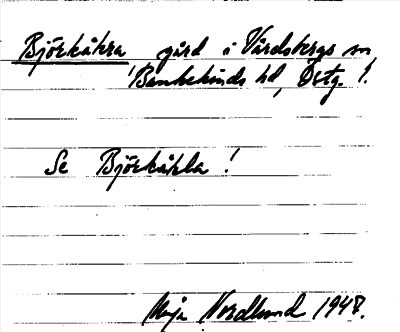 Björkåkra gård i Vårdsbergs sn
Bankekinds hd, Östg. l.
Se Björkåkla!
Maja Nordlund 1947.